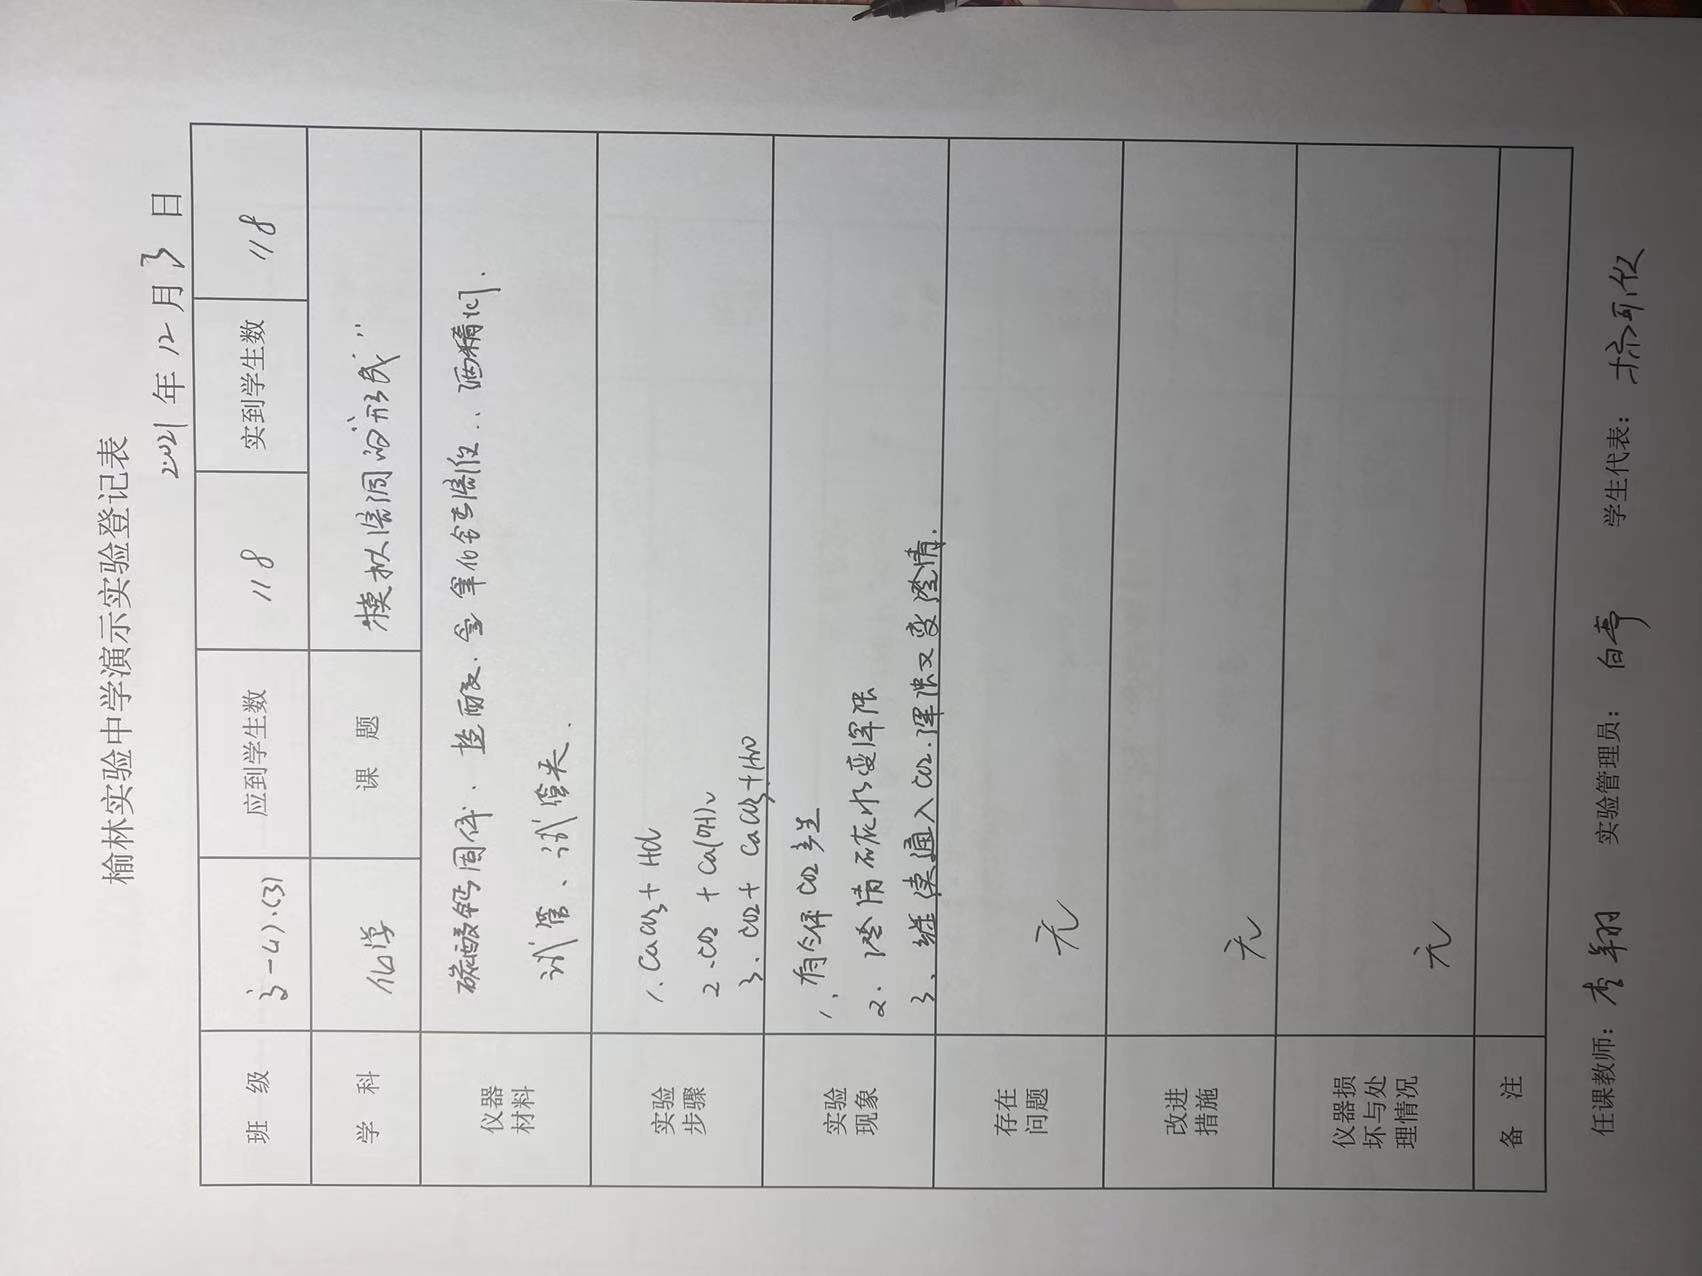 榆林实验中学演示实验登记表
2021年12月3日
班级 应到学生数 118 实到学生数 118
学科 化学 课题 模拟溶洞的"形成"
仪器材料 碳酸钙固体、盐酸、氢氧化钙溶液、酒精灯.
试管、试管夹.
实验步骤 1. CaCO3 + HCl
2. CO2 + Ca(OH)2
3. CO2 + CaCO3 + H2O
实验现象 1、有气体CO2产生
2. 澄清石灰水变浑浊
3、继续通入CO2.浑浊又变澄清.
存在问题 无
改进措施 无
仪器损坏与处理情况 无
备注
任课教师: 李翔 实验管理员: 白亭 学生代表: